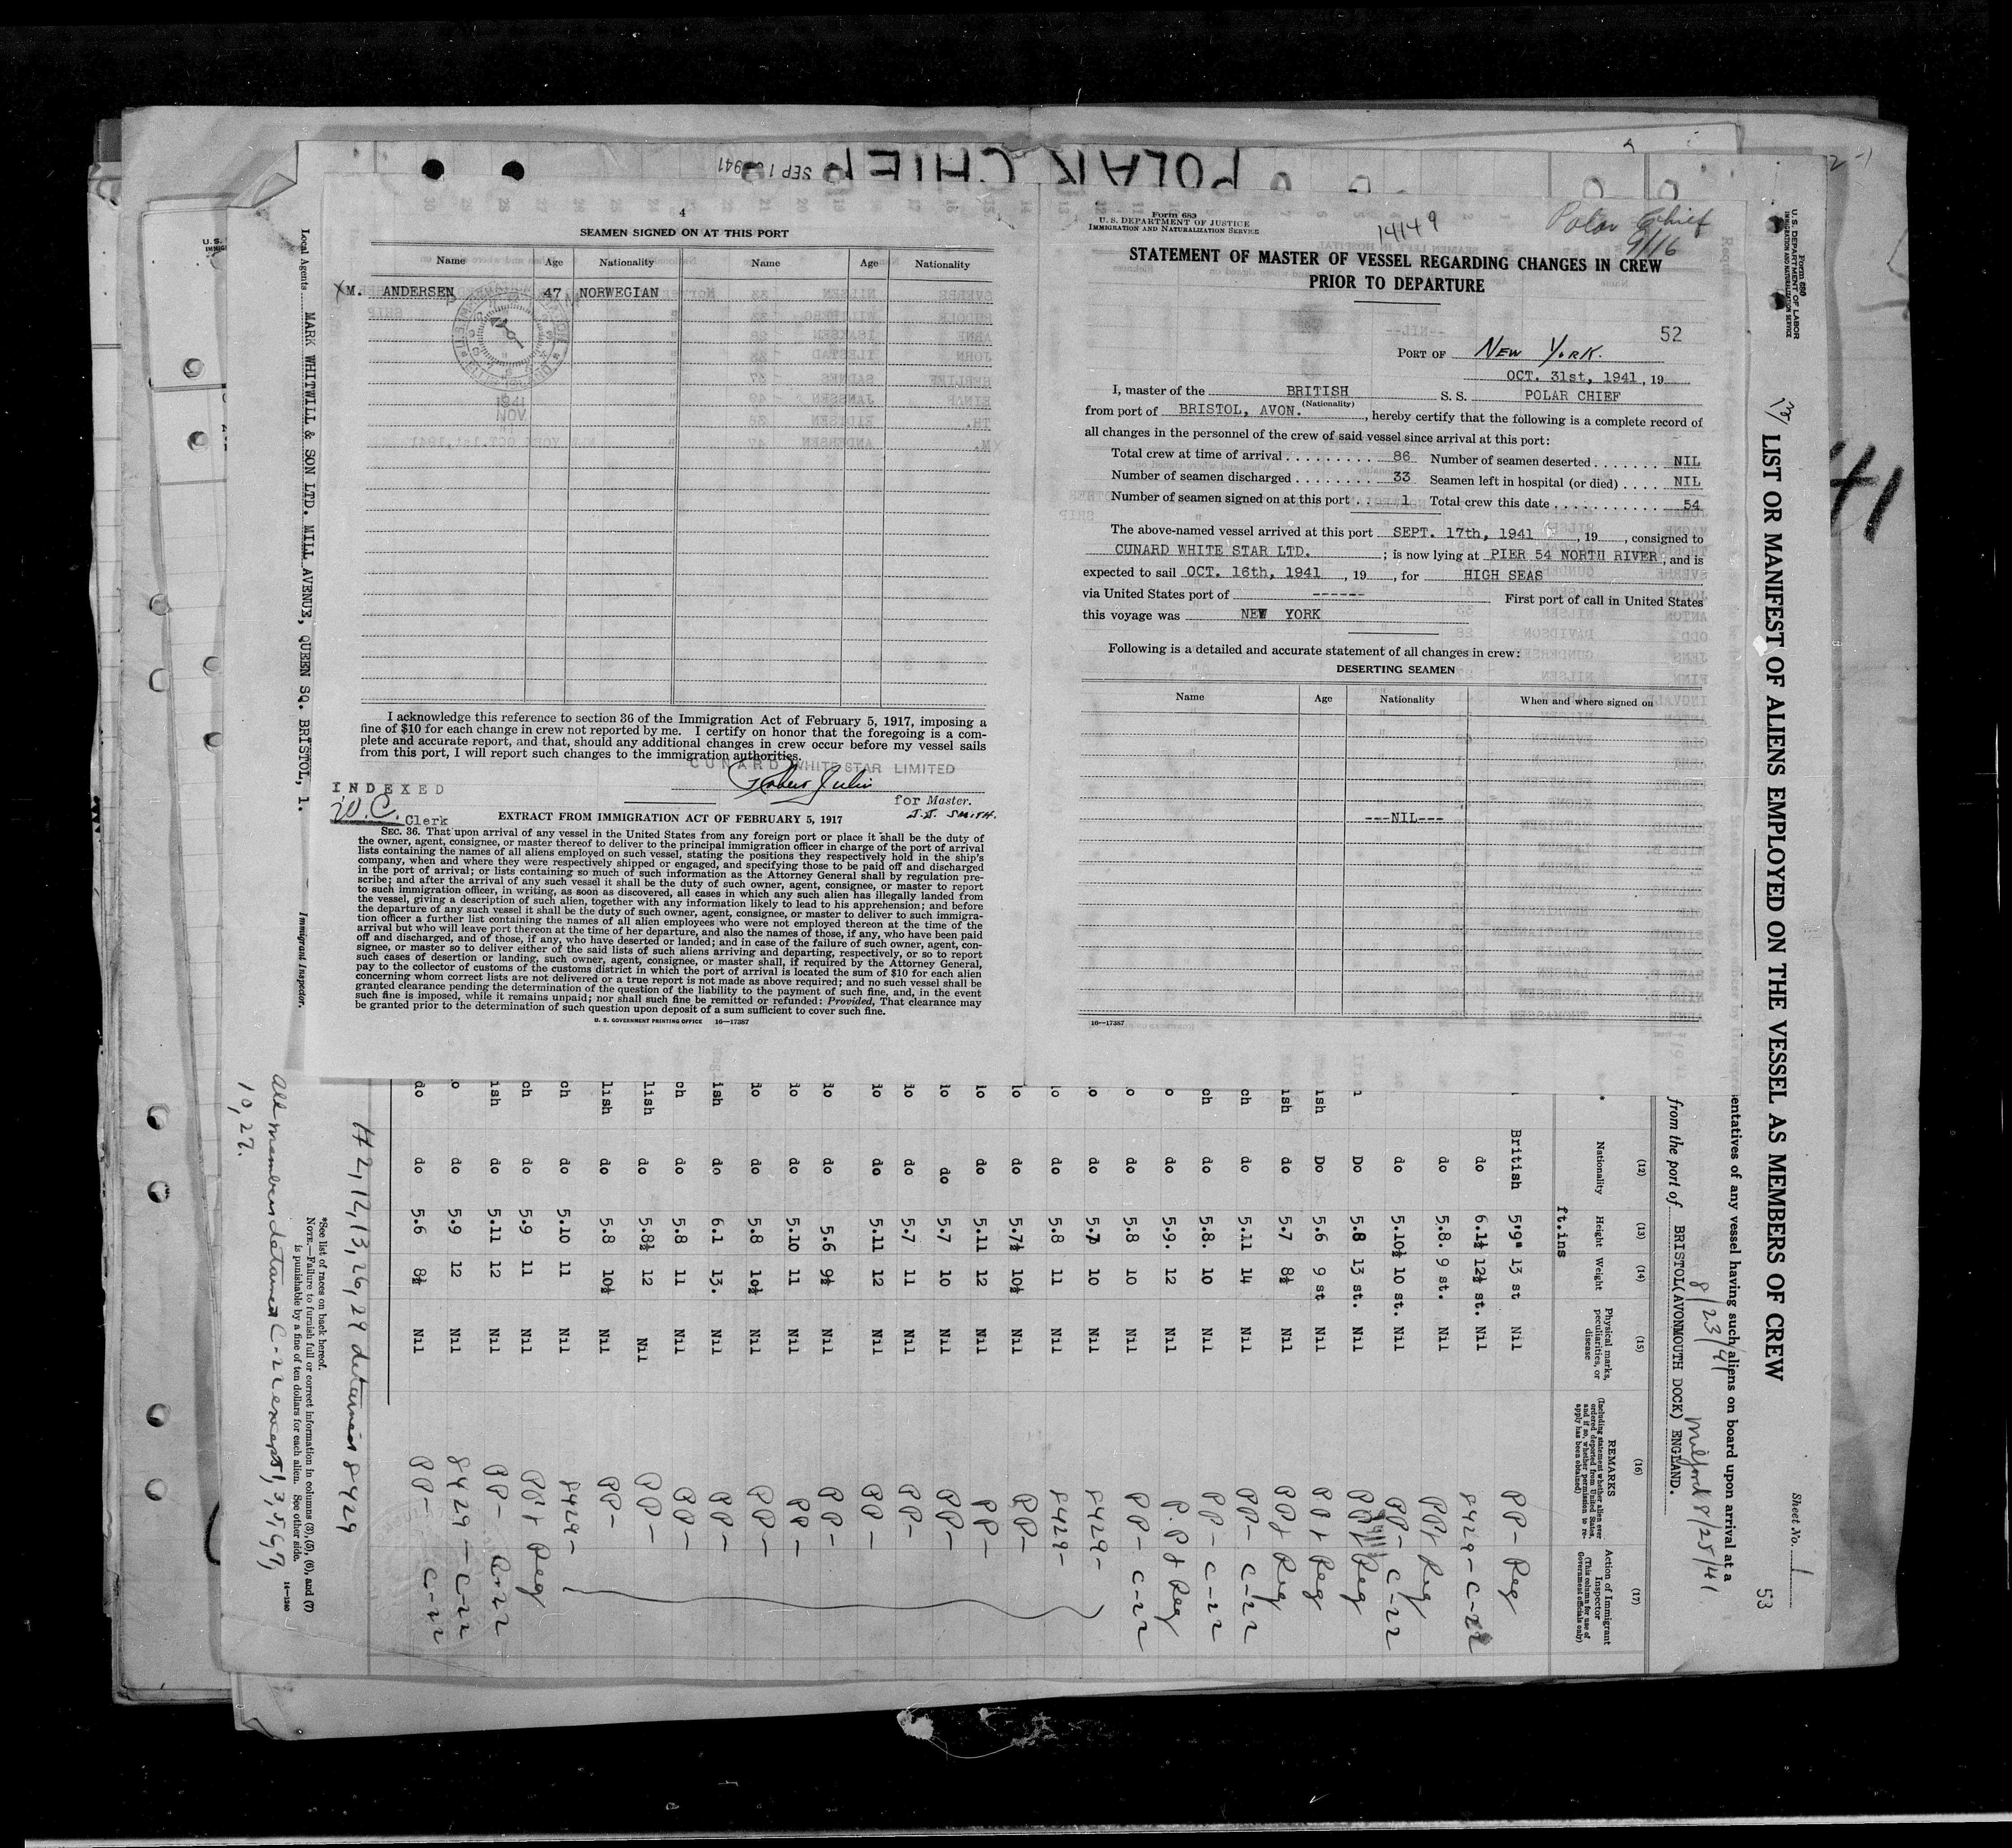 POLAR CHIEF
SEP 1 1941
4
SEAMEN SIGNED ON AT THIS PORT
Name Age Nationality Name Age Nationality
XM. ANDERSEN 47 NORWEGIAN
I acknowledge this reference to section 36 of the Immigration Act of February 5, 1917, imposing a
fine of $10 for each change in crew not reported by me. I certify on honor that the foregoing is a com-
plete and accurate report, and that, should any additional changes in crew occur before my vessel sails
from this port, I will report such changes to the immigration authorities.
CUNARD WHITE STAR LIMITED
for Master.
J.J. SMITH.
INDEXED
W.C. Clerk
EXTRACT FROM IMMIGRATION ACT OF FEBRUARY 5, 1917
SEC. 36. That upon arrival of any vessel in the United States from any foreign port or place it shall be the duty of
the owner, agent, consignee, or master thereof to deliver to the principal immigration officer in charge of the port of arrival
lists containing the names of all aliens employed on such vessel, stating the positions they respectively hold in the ship's
company, when and where they were respectively shipped or engaged, and specifying those to be paid off and discharged
in the port of arrival; or lists containing so much of such information as the Attorney General shall by regulation pre-
scribe; and after the arrival of any such vessel it shall be the duty of such owner, agent, consignee, or master to report
to such immigration officer, in writing, as soon as discovered, all cases in which any such alien has illegally landed from
the vessel, giving a description of such alien, together with any information likely to lead to his apprehension; and before
the departure of any such vessel it shall be the duty of such owner, agent, consignee, or master to deliver to such immigra-
tion officer a further list containing the names of all alien employees who were not employed thereon at the time of the
arrival but who will leave port thereon at the time of her departure, and also the names of those, if any, who have been paid
off and discharged, and of those, if any, who have deserted or landed; and in case of the failure of such owner, agent, con-
signee, or master so to deliver either of the said lists of such aliens arriving and departing, respectively, or so to report
such cases of desertion or landing, such owner, agent, consignee, or master shall, if required by the Attorney General,
pay to the collector of customs of the customs district in which the port of arrival is located the sum of $10 for each alien
concerning whom correct lists are not delivered or a true report is not made as above required; and no such vessel shall be
granted clearance pending the determination of the question of the liability to the payment of such fine, and, in the event
such fine is imposed, while it remains unpaid; nor shall such fine be remitted or refunded: Provided, That clearance may
be granted prior to the determination of such question upon deposit of a sum sufficient to cover such fine.
U. S. GOVERNMENT PRINTING OFFICE 16—17387
Form 683
U. S. DEPARTMENT OF JUSTICE
IMMIGRATION AND NATURALIZATION SERVICE
14149
Polar Chief
9/16
STATEMENT OF MASTER OF VESSEL REGARDING CHANGES IN CREW
PRIOR TO DEPARTURE
52
PORT OF NEW YORK.
OCT. 31st, 1941, 19
I, master of the BRITISH S. S. POLAR CHIEF
(Nationality)
from port of BRISTOL, AVON., hereby certify that the following is a complete record of
all changes in the personnel of the crew of said vessel since arrival at this port:
Total crew at time of arrival 86 Number of seamen deserted NIL
Number of seamen discharged 33 Seamen left in hospital (or died) NIL
Number of seamen signed on at this port 1 Total crew this date 54
The above-named vessel arrived at this port SEPT. 17th, 1941, 19, consigned to
CUNARD WHITE STAR LTD. ; is now lying at PIER 54 NORTH RIVER, and is
expected to sail OCT. 16th, 1941, 19, for HIGH SEAS
via United States port of ------ First port of call in United States
this voyage was NEW YORK
Following is a detailed and accurate statement of all changes in crew:
DESERTING SEAMEN
Name Age Nationality When and where signed on
---NIL---
16—17387
Form 680
U. S. DEPARTMENT OF LABOR
IMMIGRATION AND NATURALIZATION SERVICE
LIST OR MANIFEST OF ALIENS EMPLOYED ON THE VESSEL AS MEMBERS OF CREW
Sheet No. 1
53
entatives of any vessel having such aliens on board upon arrival at a
8/23/41 Milford 8/25/41
from the port of BRISTOL(AVONMOUTH DOCK) ENGLAND.
(12) (13) (14) (15) (16) (17)
Nationality Height Weight Physical marks, peculiarities, or disease REMARKS (Including statement whether alien ever ordered deported from United States, and if so, whether permission to re-apply has been obtained) Action of Immigrant Inspector (This column for use of Government officials only)
ft.ins
British 5'9" 13 st Nil PP- Reg
do 6.1½ 12½ st. Nil 8429-C-22
do 5.8. 9 st. Nil PP+ Reg
do 5.10½ 10 st. Nil PP- C-22
Do 5.8 13 st. Nil PP+ Reg
ish Do 5.6 9 st Nil PP+ Reg
ish do 5.7 8½ Nil PP+ Reg
ch do 5.11 14 Nil PP- C-22
ch do 5.8. 10 Nil PP- C-22
o do 5.9. 12 Nil P.P+ Reg
o do 5.8 10 Nil PP- C-22
o do 5.7 10 Nil 8429-
lo do 5.8 11 Nil 8429-
lo do 5.7½ 10½ Nil PP-
io do 5.11 12 Nil PP-
io do 5.7 10 Nil PP-
io do 5.7 11 Nil PP-
io do 5.11 12 Nil PP-
io do 5.6 9½ Nil PP-
io do 5.10 11 Nil PP-
io do 5.8 10½ Nil PP-
ish do 6.1 13. Nil PP-
ch do 5.8 11 Nil PP-
lish do 5.8½ 12 Nil PP-
lish do 5.8 10½ Nil PP-
ch do 5.10 11 Nil 8429-
ch do 5.9 11 Nil PP+ Reg
ish do 5.11 12 Nil PP- C-22
o do 5.9 12 Nil 8429-C-22
do do 5.6 8½ Nil PP- C-22
H 2,12,13,26,29 detained 8429
*See list of races on back hereof.
NOTE.—Failure to furnish full or correct information in columns (3), (5), (6), and (7)
is punishable by a fine of ten dollars for each alien. See other side.
14—1240
Local Agents MARK WHITWILL & SON LTD. MILL AVENUE, QUEEN SQ. BRISTOL, 1.
Immigrant Inspector.
All members detained C-22 except 1,3,5,6,7,
10,27.
41